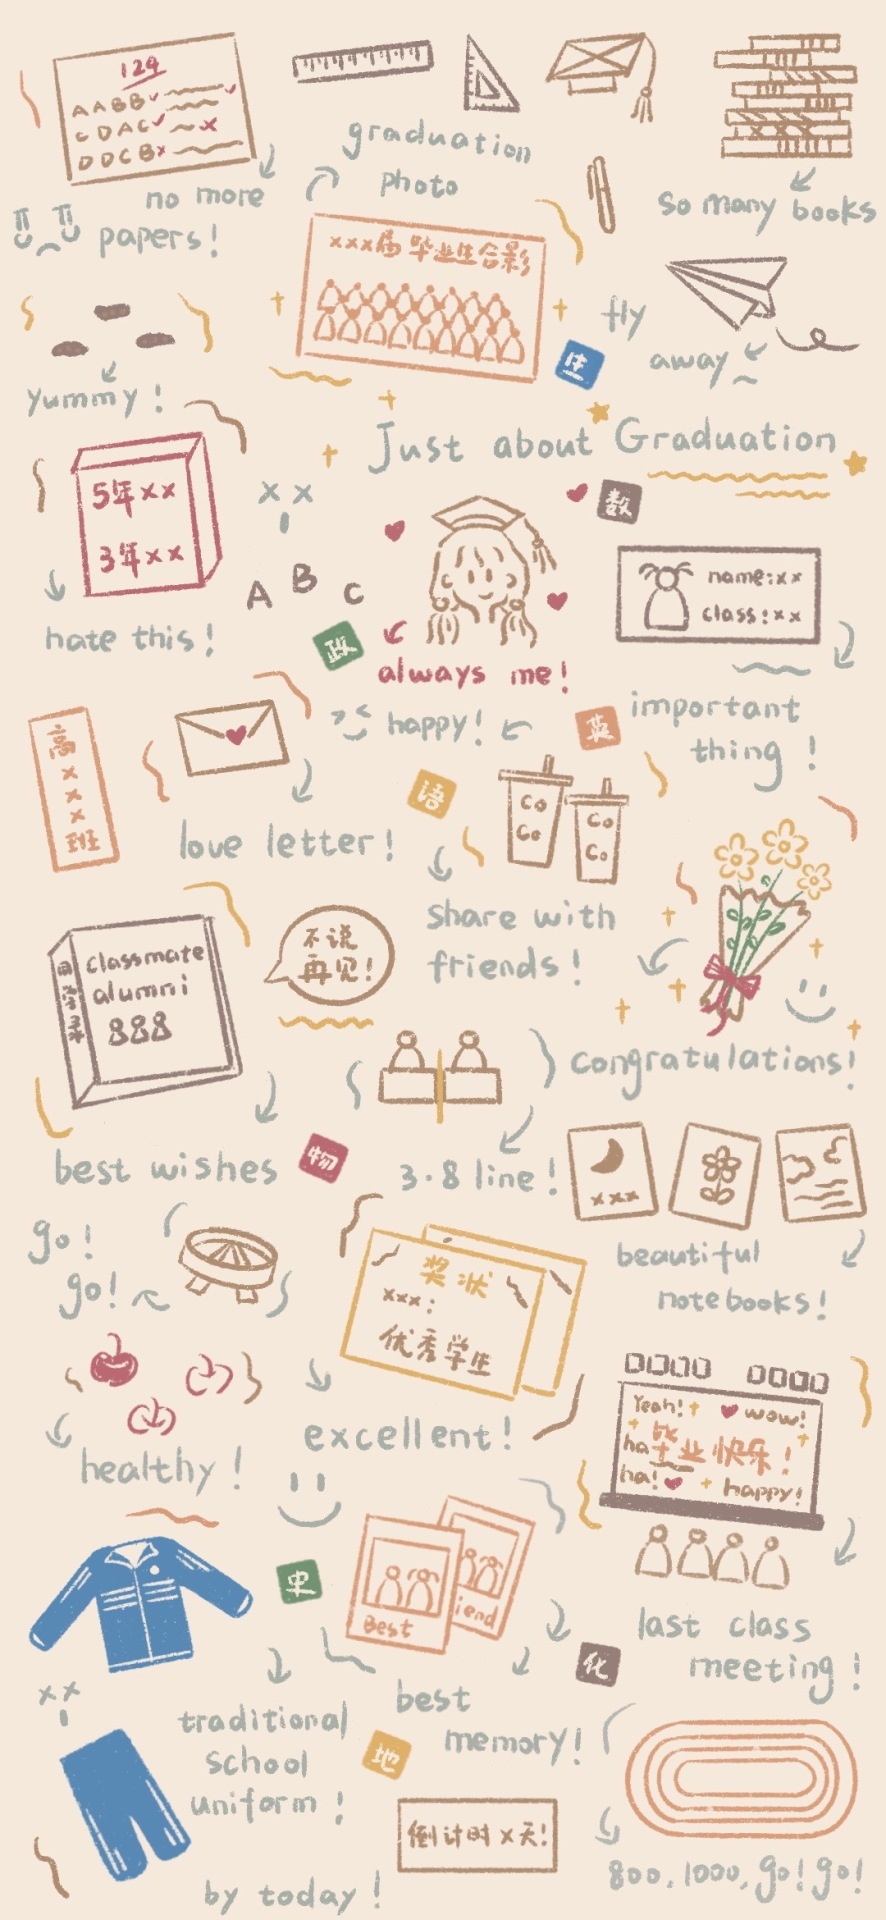 129
AABB
CDAC
DDCB
no more
papers!
graduation
photo
so many books
xxx届毕业生合影
fly
away
生
yummy!
Just about Graduation
5年xx
3年xx
数
A B C
name:xx
class:xx
hate this!
政
always me!
happy!
important
thing!
英
高
x
x
x
班
love letter!
语
Co
Co
Co
Co
share with
friends!
同学录
classmate
alumni
不说
再见!
congratulations!
best wishes
物
3·8 line!
xxx
beautiful
notebooks!
go!
go!
奖状
xxx:
优秀学生
healthy!
excellent!
Yeah! wow!
ha 毕业快乐!
ha! happy!
史
Best
iend
last class
meeting!
化
traditional
school
uniform!
best
memory!
地
倒计时x天!
by today!
800,1000,go!go!